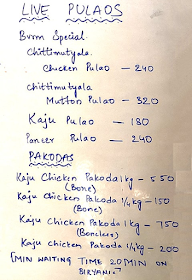 LIVE PULAOS
Bvrm Special
Chittimutyala
Chicken Pulao – 240
Chittimutyala
Mutton Pulao – 320
Kaju Pulao – 180
Paneer Pulao – 240
PAKODAS
Kaju Chicken Pakoda 1kg – 550
(Bone)
Kaju Chicken Pakoda 1/4kg – 150
(Bone)
Kaju Chicken Pakoda 1kg – 750
(Boneless)
Kaju chicken Pakoda 1/4kg – 200
[MIN WAITING TIME 20 MIN ON
BIRYANI]